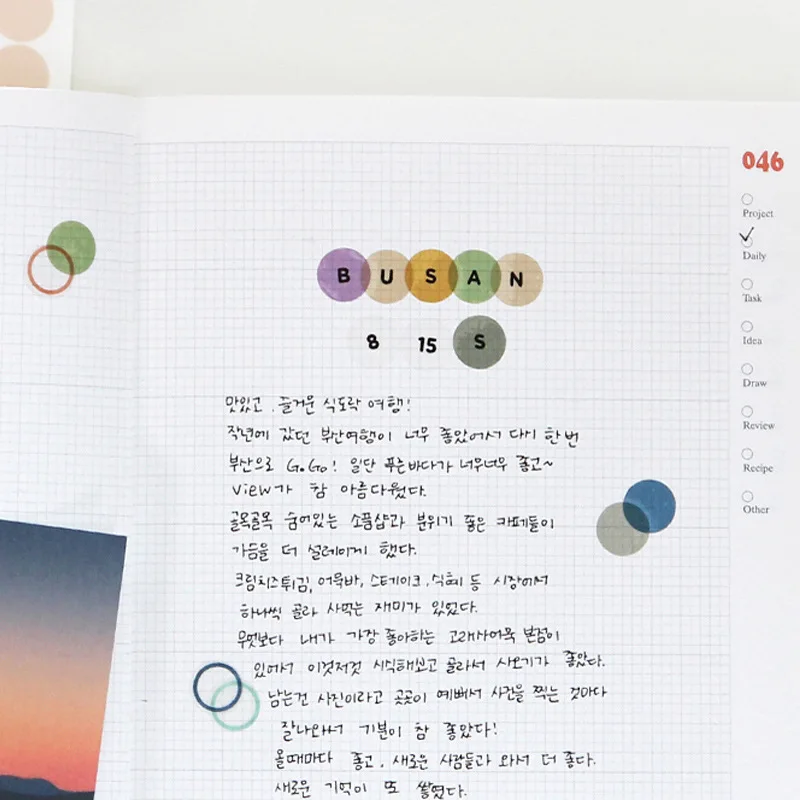 046
Project
Daily
Task
Idea
Draw
Review
Recipe
Other
BUSAN
8 15 S
맛있고, 즐거운 식도락 여행!
작년에 갔던 부산여행이 너무 좋았어서 다시 한번
부산으로 GoGo! 일단 푸른바다가 너무너무 좋고~
view가 참 아름다웠다.
골목골목 숨어있는 소품샵과 분위기 좋은 카페들이
가슴을 더 설레이게 했다.
크림치즈튀김, 어묵바, 스테이크, 식혜 등 시장에서
하나씩 골라 사먹는 재미가 있었다.
무엇보다 내가 가장 좋아하는 고래사어묵 본점이
있어서 이것저것 시식해보고 골라서 사오기가 좋았다.
남는건 사진이라고 곳곳이 예뻐서 사진을 찍는 것마다
잘나와서 기분이 참 좋았다!
올때마다 좋고, 새로운 사람들과 와서 더 좋다.
새로운 기억이 또 쌓였다.